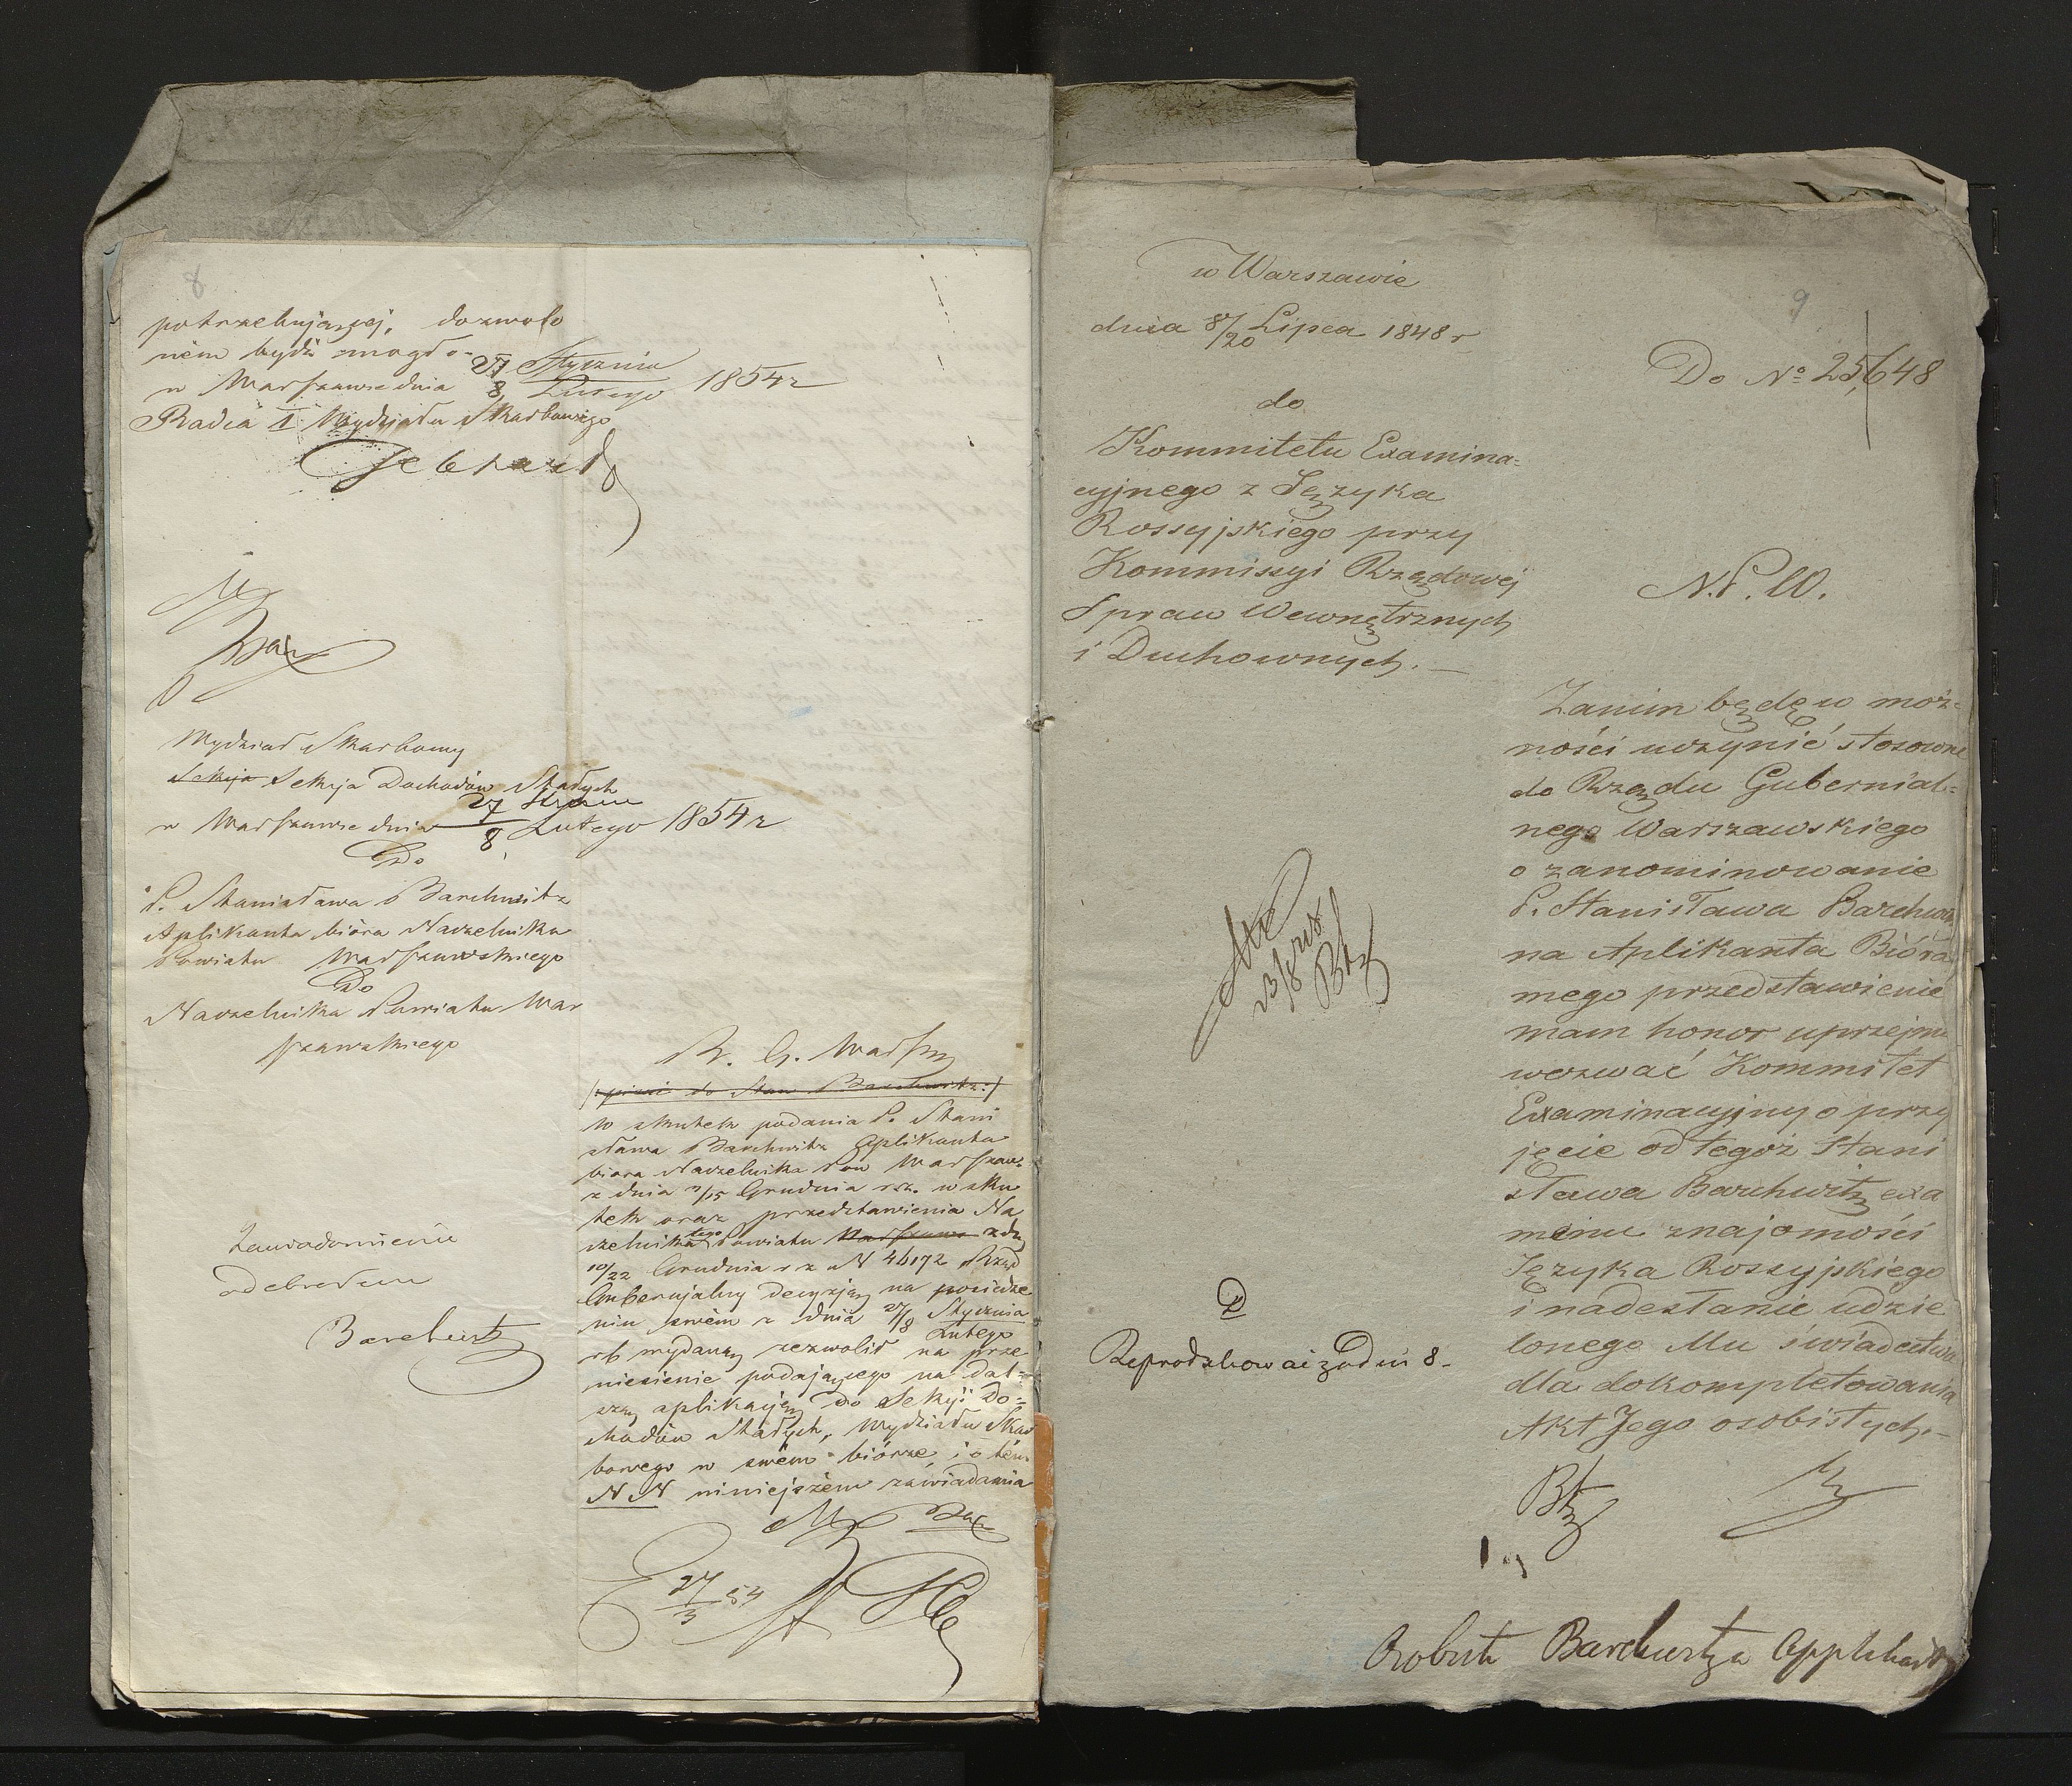 8
potrzebującej, dozwolo
ném bydź mogło.
w Warszawie dnia 27 Stycznia / 8 Lutego 1854 r
Radca I Wydziału Skarbowego
Gebhard
Wydział Skarbowy
Sekcja Sekcja Dochodów Stałych
w Warszawie dnia 27 / 8 Lutego 1854 r
Do
P. Stanisława Barchwitz
Aplikanta bióra Naczelnika
Powiatu Warszawskiego
Do
Naczelnika Powiatu War
szawskiego
Zawiadomienie
odebrałem
Barchwitz
R. G. Warsz
(: pisać do Stan Barchwitz :)
W skutek podania P. Stani
sława Barchwitz Aplikanta
bióra Naczelnika Pow Warszaw
z dnia 3/15 Grudnia r. z. w sku
tek oraz przedstawienia Na
czelnika tego Powiatu z d
10/22 Grudnia r z N 46192 Rząd
Gubernjalny decyzją na posiedze
niu swém z dnia 27/8 Stycznia / Lutego
rb wydaną zezwolił na prze
niesienie podającego na dal=
szą aplikacją do Sekcji Do=
chodów Stałych, Wydziału Skar
bowego w swém biórze, i o tém
N N niniejszém zawiadamia
27/3 54
9
w Warszawie
dnia 8/20 Lipca 1848 r
Do No 25,648
do
Kommitetu Examina=
cyjnego z Języka
Rossyjskiego przy
Kommissyi Rządowéj
Spraw Wewnętrznych
i Duchownych. —
N. P. W.
Zanim będę w moż=
ności uczynić stosowne
do Rządu Gubernial=
nego Warszawskiego
o zanominowanie
P. Stanisława Barchwitz
na Aplikanta Bióra
mego przedstawienie
mam honor uprzejmie
wezwać Kommitet
Examinacyjny o przy
jęcie od tegoż Stani
sława Barchwitz exa
minu znajomości
Języka Rossyjskiego
i nadesłanie udzie
lonego Mu świadectwa
dla dokompletowania
Akt Jego osobistych. —
23/8 848
Btz
D
Reprodukować za dni 8.
Btz
Osobiste Barchwitza Applikanta